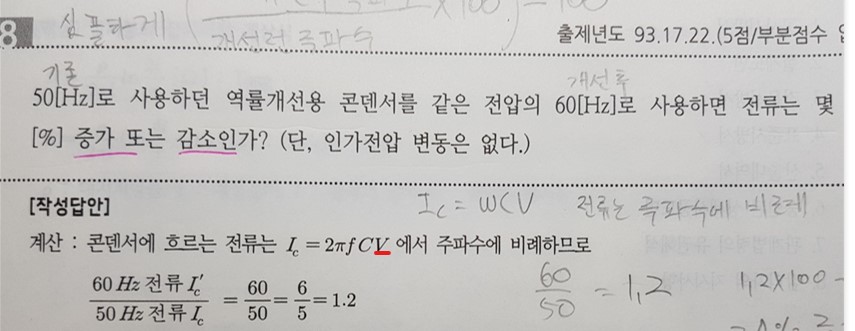 8 심플하게 ×100) = 100
개선전 주파수
출제년도 93.17.22.(5점/부분점수
기존 개선후
50[Hz]로 사용하던 역률개선용 콘덴서를 같은 전압의 60[Hz]로 사용하면 전류는 몇
[%] 증가 또는 감소인가? (단, 인가전압 변동은 없다.)
[작성답안] Ic = ωCV 전류는 주파수에 비례
계산 : 콘덴서에 흐르는 전류는 I_c = 2πfCV 에서 주파수에 비례하므로
60 Hz 전류 I_c′ / 50 Hz 전류 I_c = 60/50 = 6/5 = 1.2
60/50 = 1,2 1,2×100 -